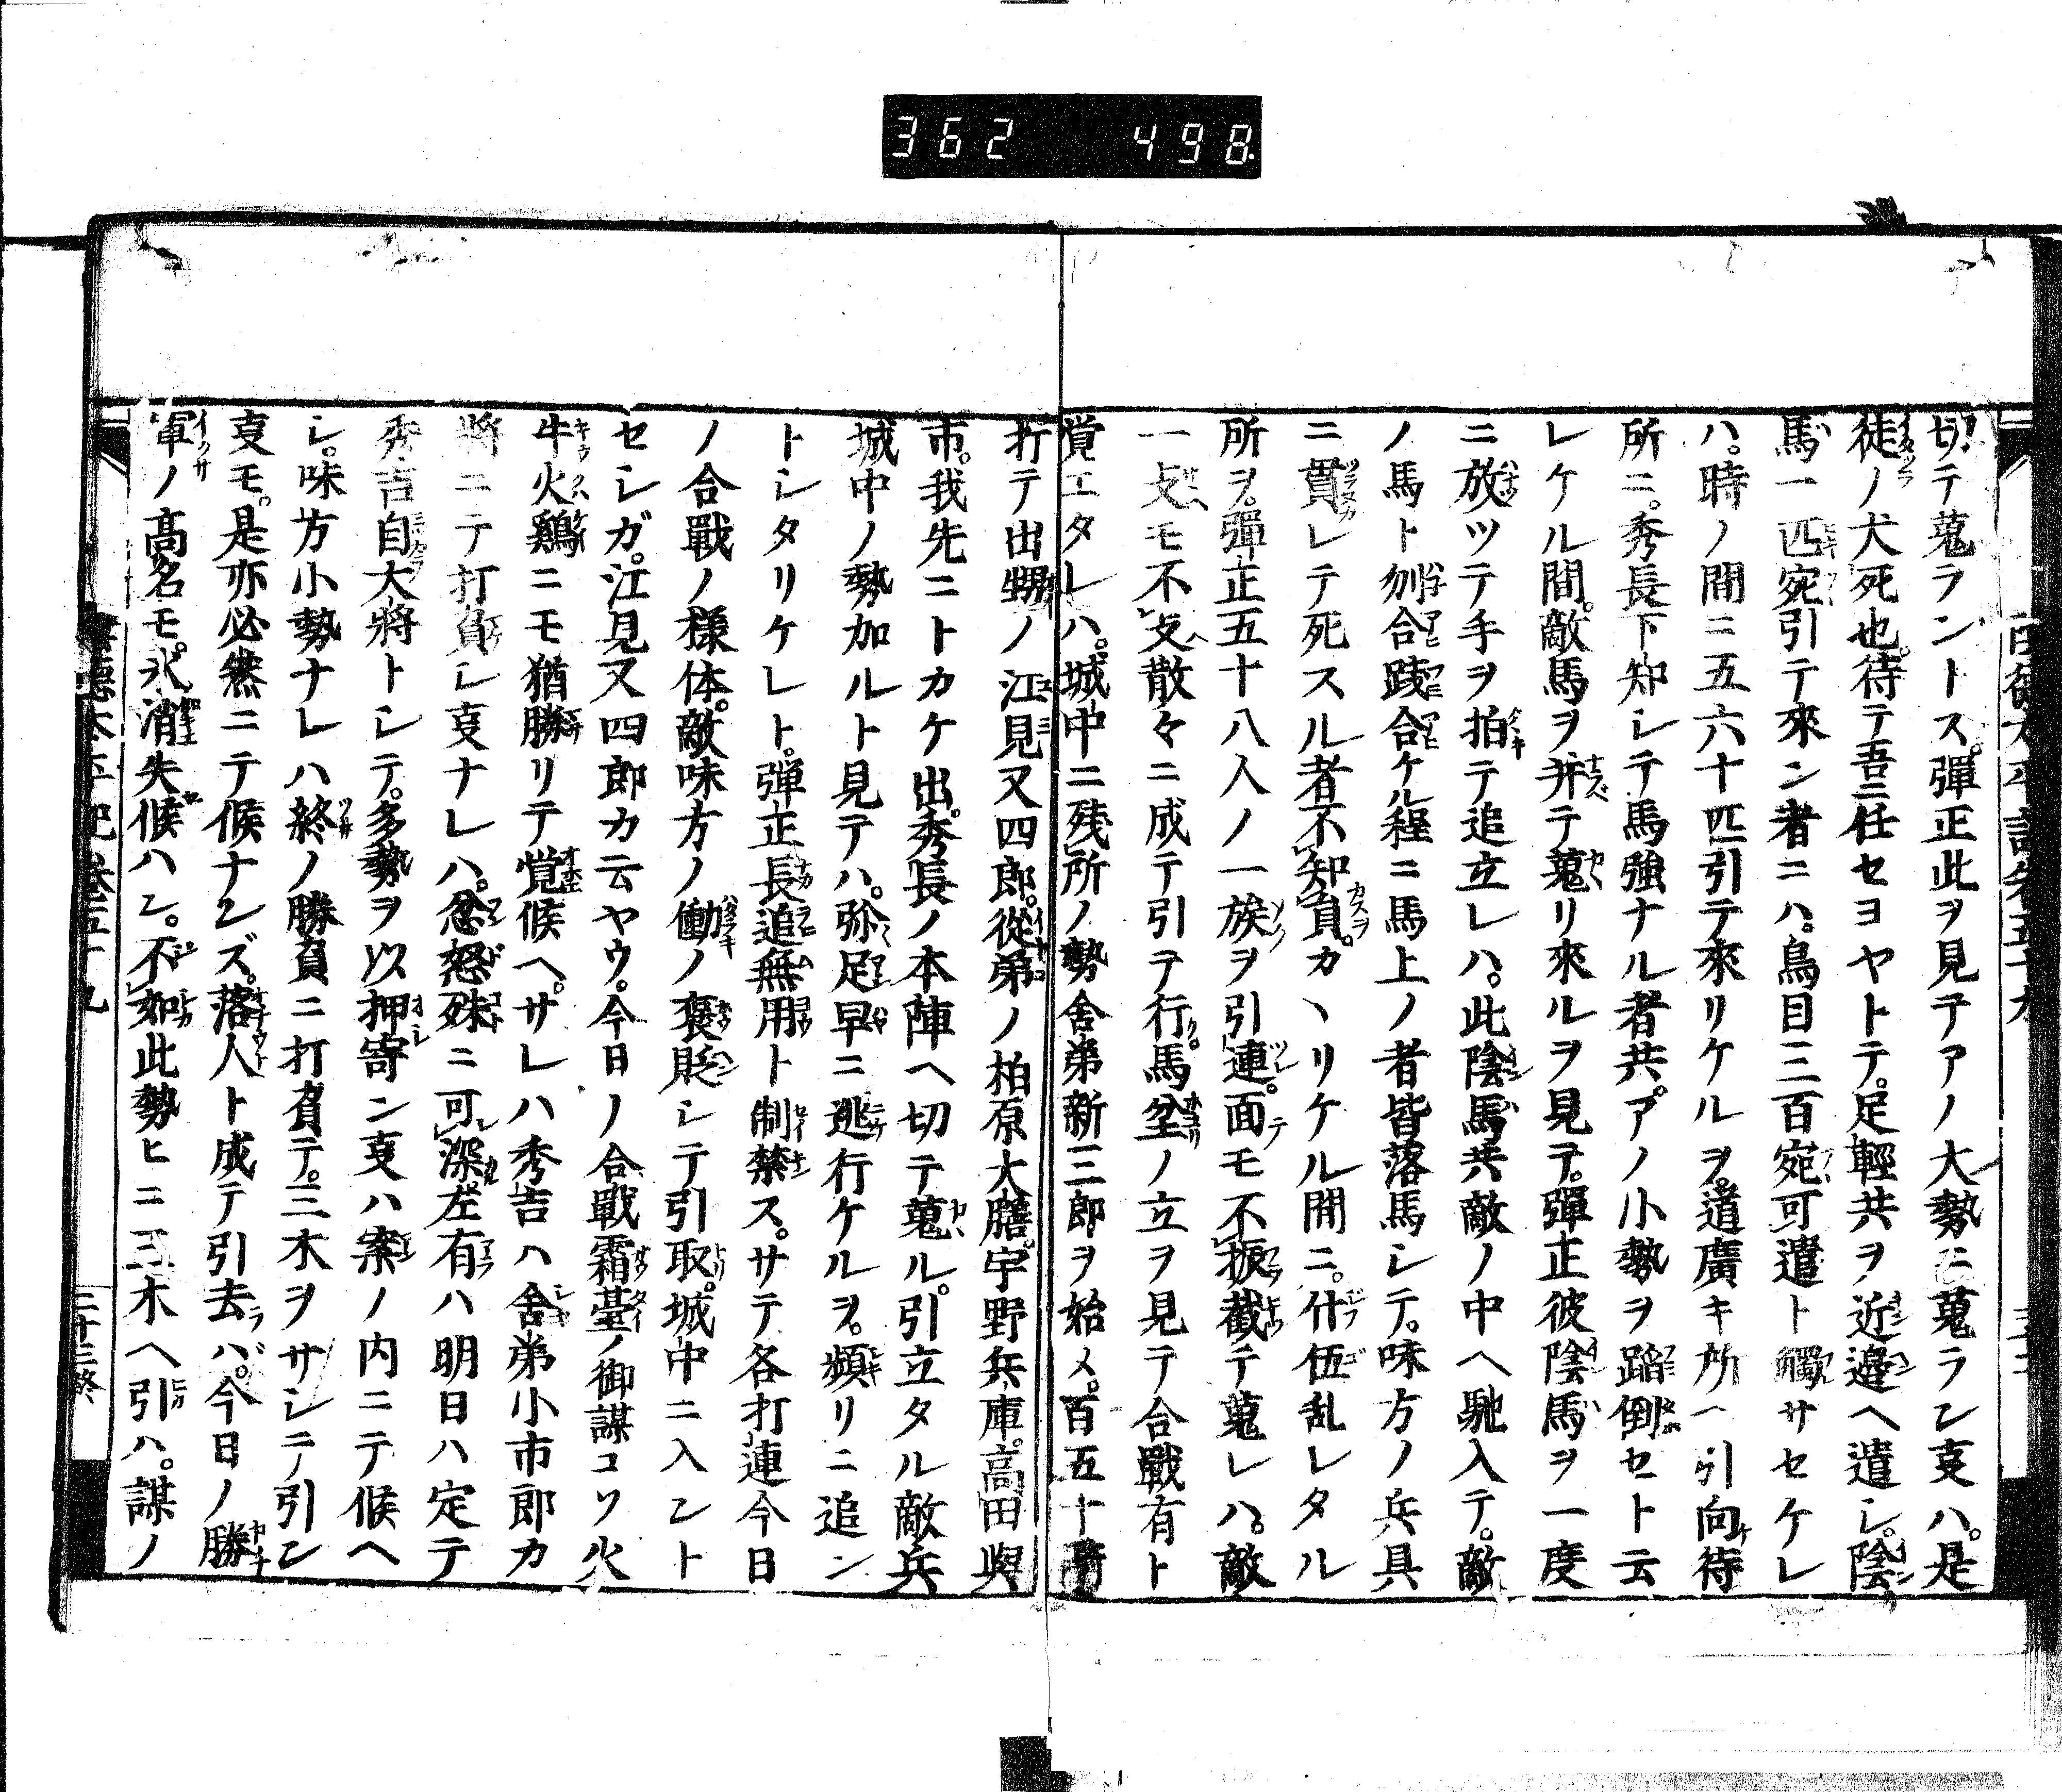 362 498.
切テ蒐ラントス。彈正此ヲ見テアノ大勢ニ蒐ラン叓ハ。是
徒ノ犬死也。待テ吾ニ任セヨヤトテ。足輕共ヲ近邉ヘ遣シ。陰
馬一匹宛引テ來ン者ニハ。鳥目三百宛可遣ト觸サセケレ
ハ。時ノ間ニ五六十匹引テ來リケルヲ。道廣キ所ヘ引向待
所ニ。秀長下知シテ馬強ナル者共。アノ小勢ヲ蹈倒セト云
レケル間。敵馬ヲ并テ蒐リ來ルヲ見テ。彈正彼陰馬ヲ一度
ニ放ツテ手ヲ拍テ追立レハ。此陰馬共敵ノ中ヘ馳入テ。敵
ノ馬ト刎合踐合ケル程ニ馬上ノ者皆落馬シテ。味方ノ兵具
ニ貫レテ死スル者不知負。カヽリケル間ニ。什伍乱レタル
所ヲ。彈正五十八人ノ一族ヲ引連。面モ不振截テ蒐レハ。敵
一支モ不支散々ニ成テ引テ行。馬埃ノ立ヲ見テ合戰有ト
覚エタレハ。城中ニ残所ノ勢舍弟新三郎ヲ始メ。百五十騎
打テ出甥ノ江見又四郎。從弟ノ柏原大膳。宇野兵庫。高田與
市。我先ニトカケ出。秀長ノ本陣ヘ切テ蒐ル。引立タル敵兵
城中ノ勢加ルト見テハ。弥足早ニ逃行ケルヲ。頻リニ追ン
トシタリケレト。彈正長追無用ト制禁ス。サテ各打連今日
ノ合戰ノ様体。敵味方ノ働ノ褒貶シテ引取。城中ニ入ント
セシガ。江見又四郎カ云ヤウ。今日ノ合戰霜臺ノ御謀コソ火
牛火鷄ニモ猶勝リテ覚候ヘ。サレハ秀吉ハ舍弟小市郎カ
將ニテ打負シ叓ナレハ。忿怒殊ニ可深。左有ハ明日ハ定テ
秀吉自大將トシテ。多勢ヲ以押寄ン叓ハ案ノ内ニテ候ヘ
シ。味方小勢ナレハ終ノ勝負ニ打負テ。三木ヲサシテ引ン
叓モ。是亦必然ニテ候ナンズ。落人ト成テ引去ハ。今日ノ勝
軍ノ高名モ。氷消失候ハン。不如此勢ヒニ三木ヘ引ハ。謀ノ